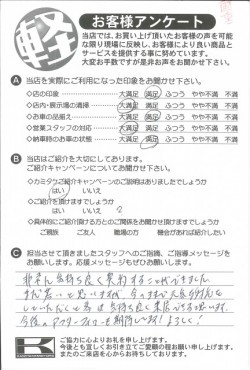 軽
お客様アンケート
当店では、お買い上げ頂いたお客様の声を可能
な限り現場に反映し、お客様により良い商品と
サービスを提供する事に努めています。
大変お手数ですが是非お声をお聞かせ下さい。
A 当店を実際にご利用になった印象をお聞かせ下さい。
◇店の印象 大満足 満足 ふつう やや不満 不満
◇店内・展示場の清掃 大満足 満足 ふつう やや不満 不満
◇お車の品揃え 大満足 満足 ふつう やや不満 不満
◇営業スタッフの対応 大満足 満足 ふつう やや不満 不満
◇納車時のお車の状態 大満足 満足 ふつう やや不満 不満
B 当店はご紹介を大切にしております。
ご紹介キャンペーンについてお聞かせ下さい。
◇カミタケご紹介キャンペーンのご説明はありましたでしょうか
はい いいえ
はい いいえ
◇具体的にご紹介頂ける方とのご関係をお聞かせ頂けますでしょうか
ご親族 ご友人 職場の方 機会があれば紹介したい
C 担当させて頂きましたスタッフへのご指摘、ご指導メッセージを
お願いします。応援メッセージもぜひお願いします。
非常に気持ち良く契約することができました
今後のアフターフォローを期待します!よろしく!
ご協力に心よりお礼を申し上げます。
今後とも宜しくお引き立てご愛顧の程お願い申し上げます。
またのご来店を心からお待ちしております。